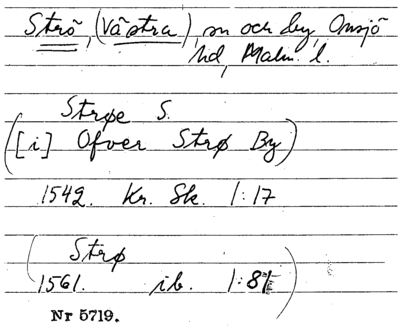 Strö, (Västra), sn och by, Onsjö
hd, Malm. l.
Strøe S.
([i] Ofver Strø By)
1542. Kr. Sk. 1:17
(Strø
1561. ib. 1:81)
Nr 5719.